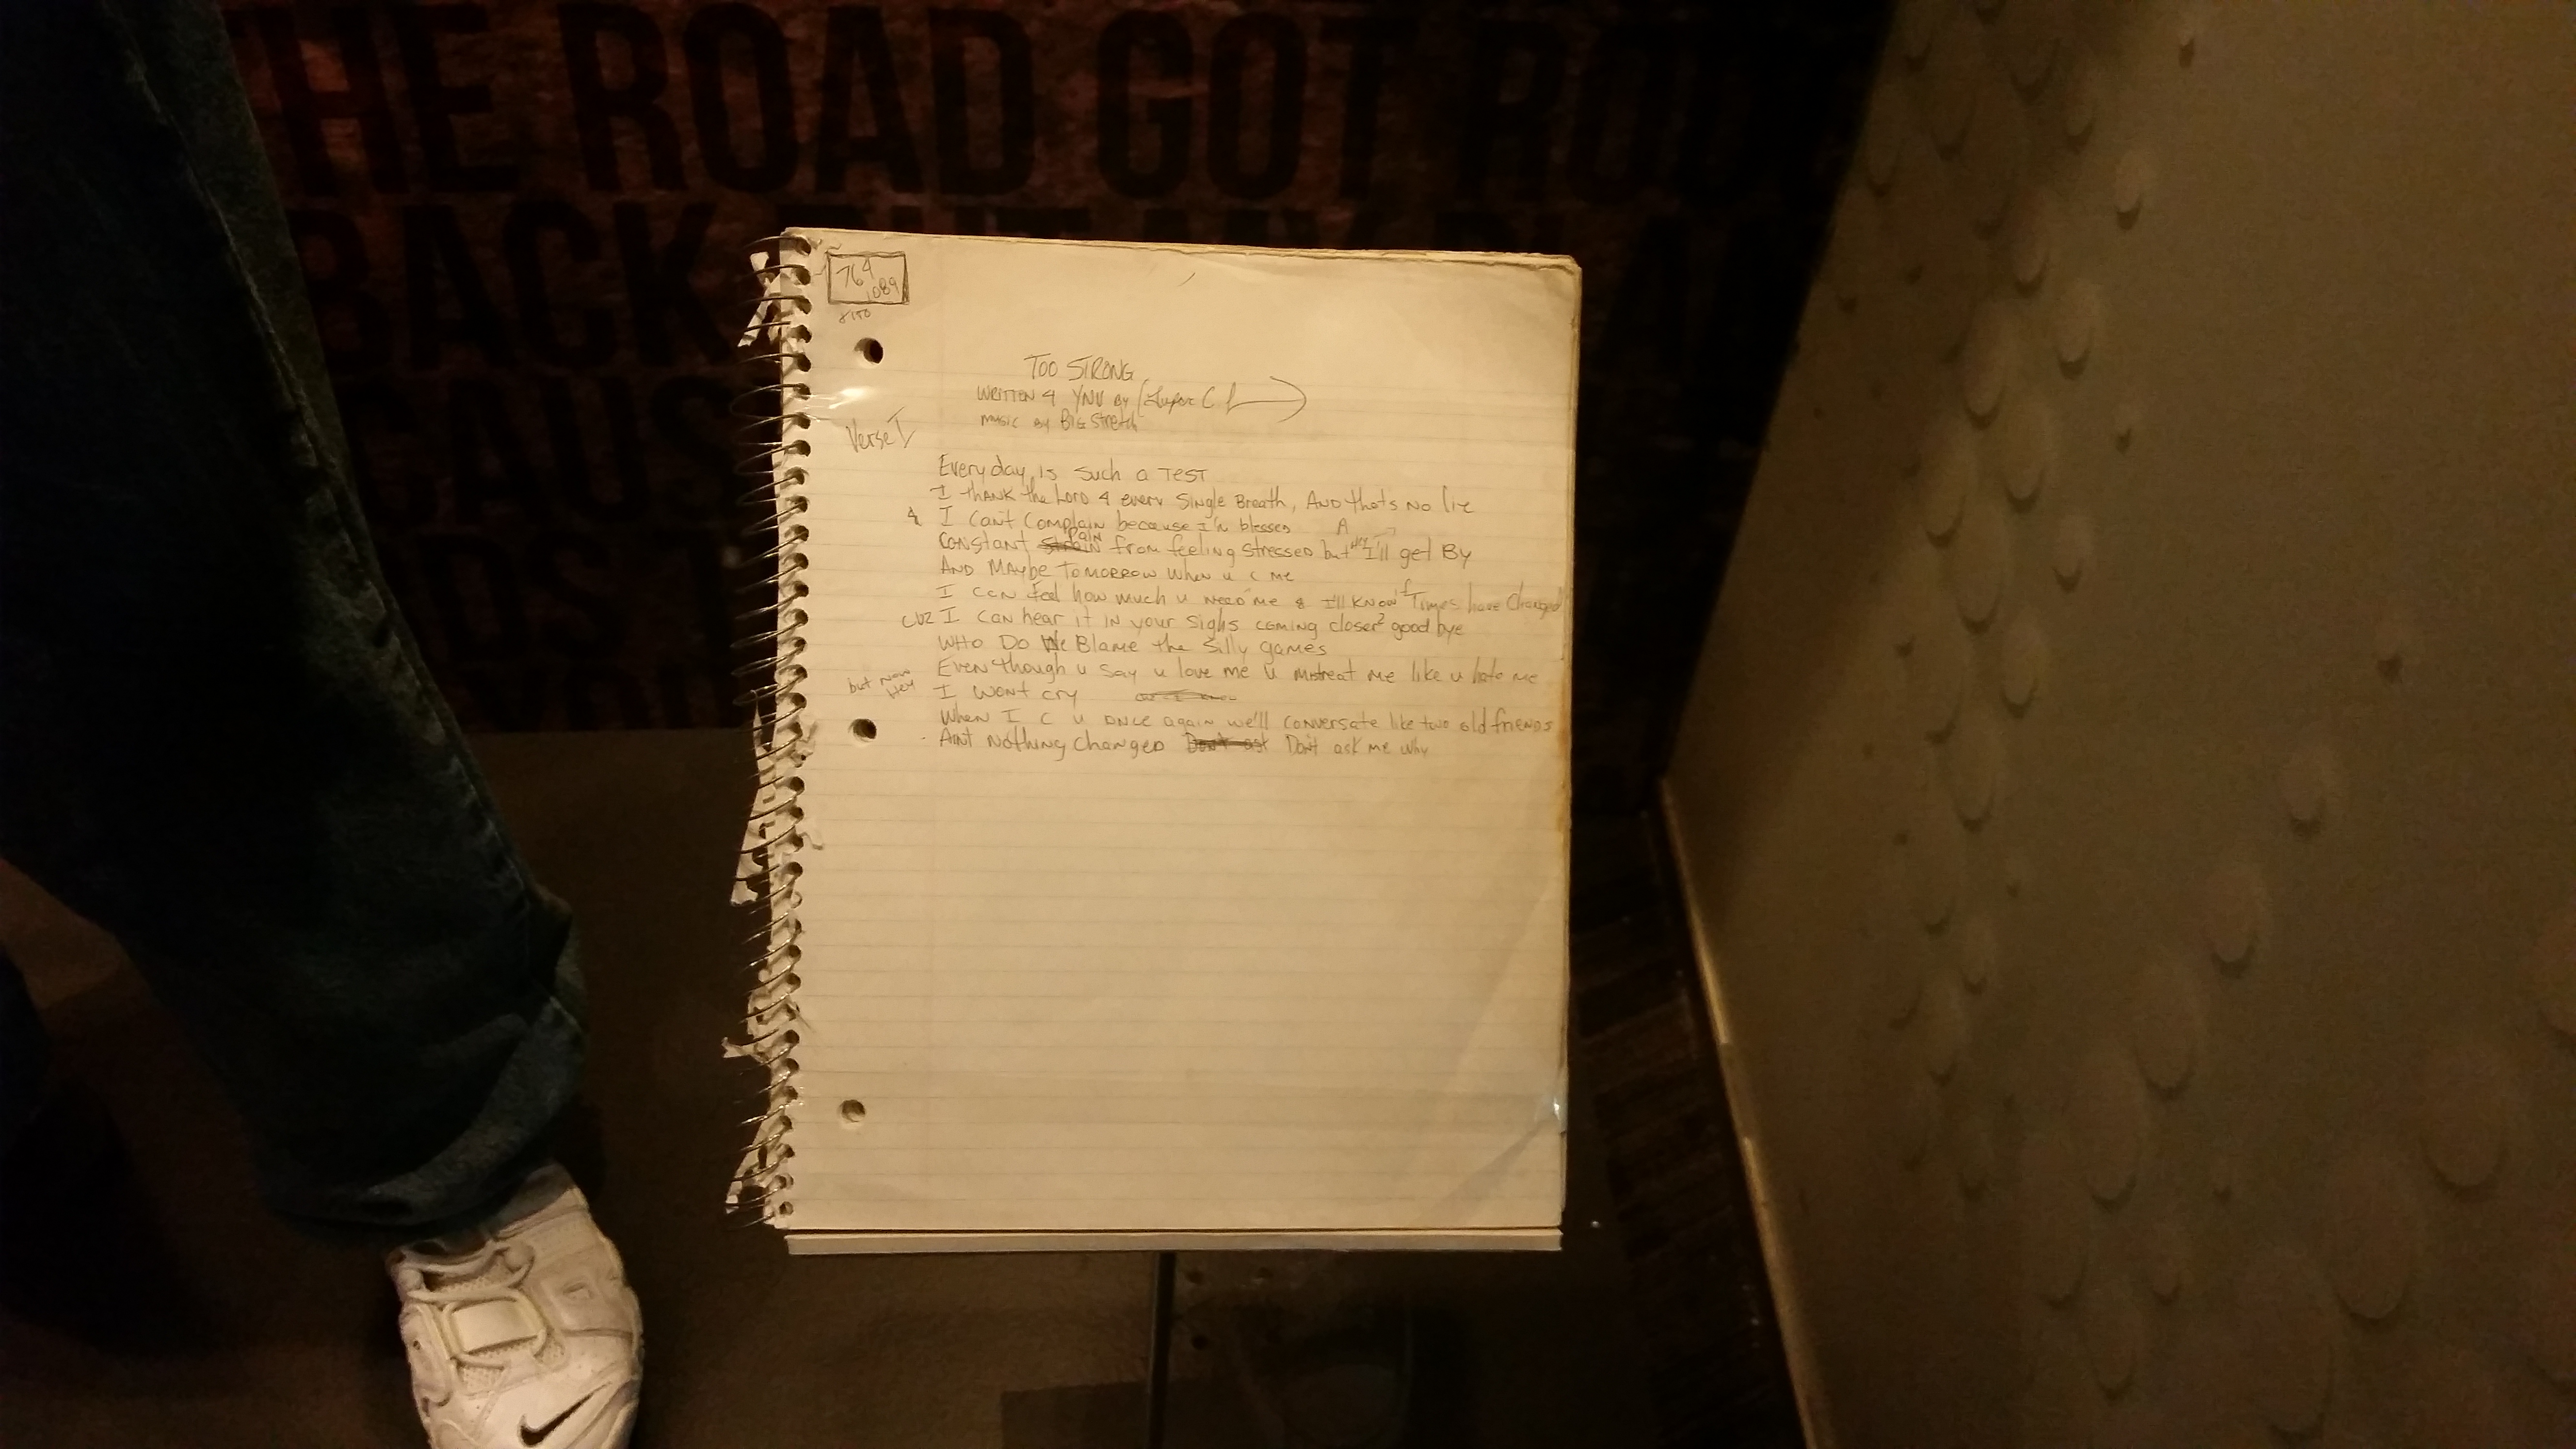 THE ROAD GOT
BACK
764
1089
TOO STRONG
WRITTEN 4 YNV BY
MUSIC BY BIG Stretch
Verse I
Everyday is such a TEST
I THANK the Lord 4 every Single Breath, AND thats NO lie
& I Cant Complain because I'm blessed A
Pain
Constant from feeling stressed but I'll get By
AND MAybe TOMORROW When u c me
I can feel how much u need me & I'll KNOW if Times have Changed
CUZ I can hear it in your Sighs coming closer 2 good bye
WHO DO We Blame the Silly games
Even though u say u love me u mistreat me like u hate me
but now Hey I wont cry
When I C u once again we'll conversate like two old friends
Aint Nothing Changed Don't ask Don't ask me why